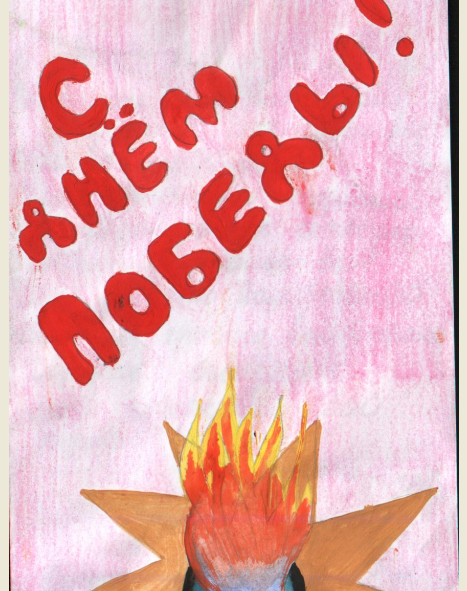 С
ДНЁМ
ПОБЕДЫ!